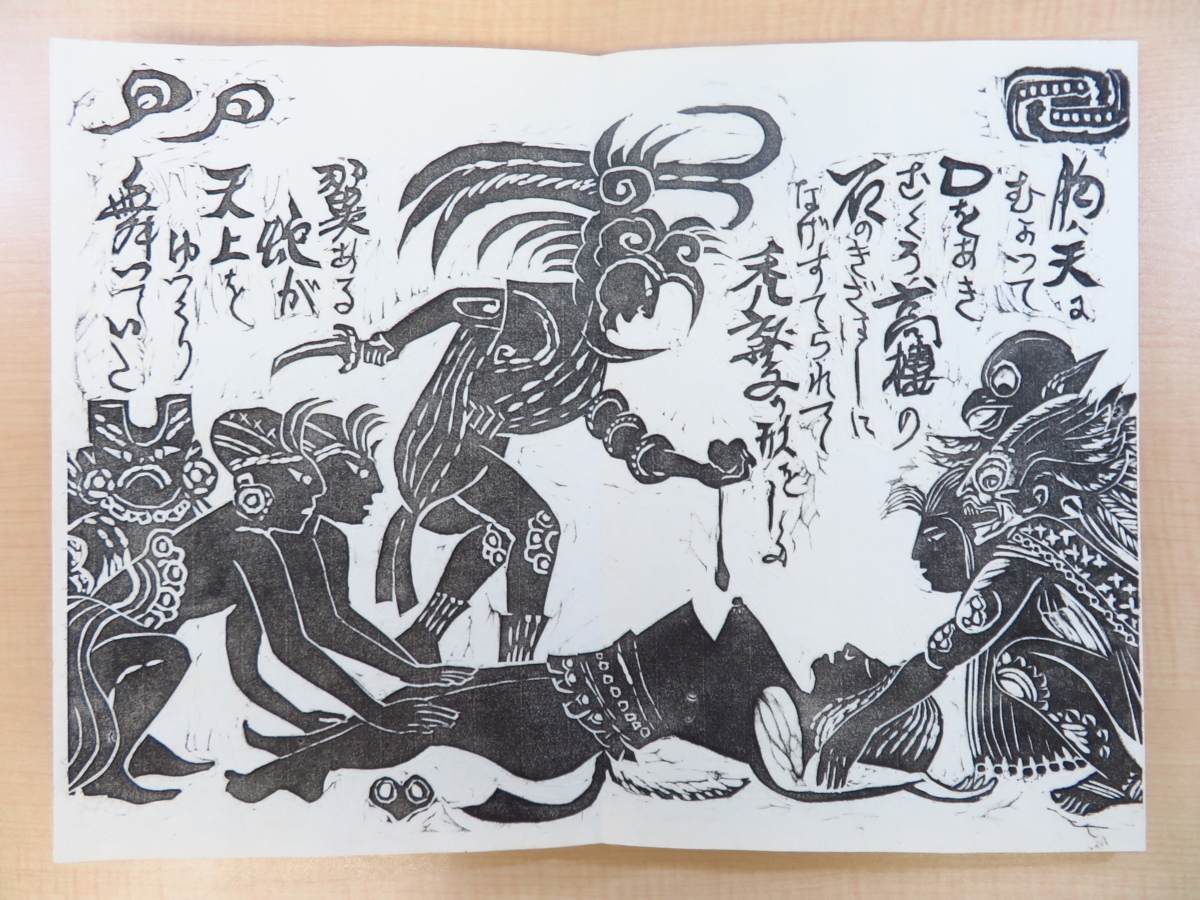 胸は天に
むかって
口をあき
むくろは高樓の
石のきざはしに
なげすてられて
禿鷲の形をしる
翼ある
蛇が
天上を
ゆっくり
舞っていた